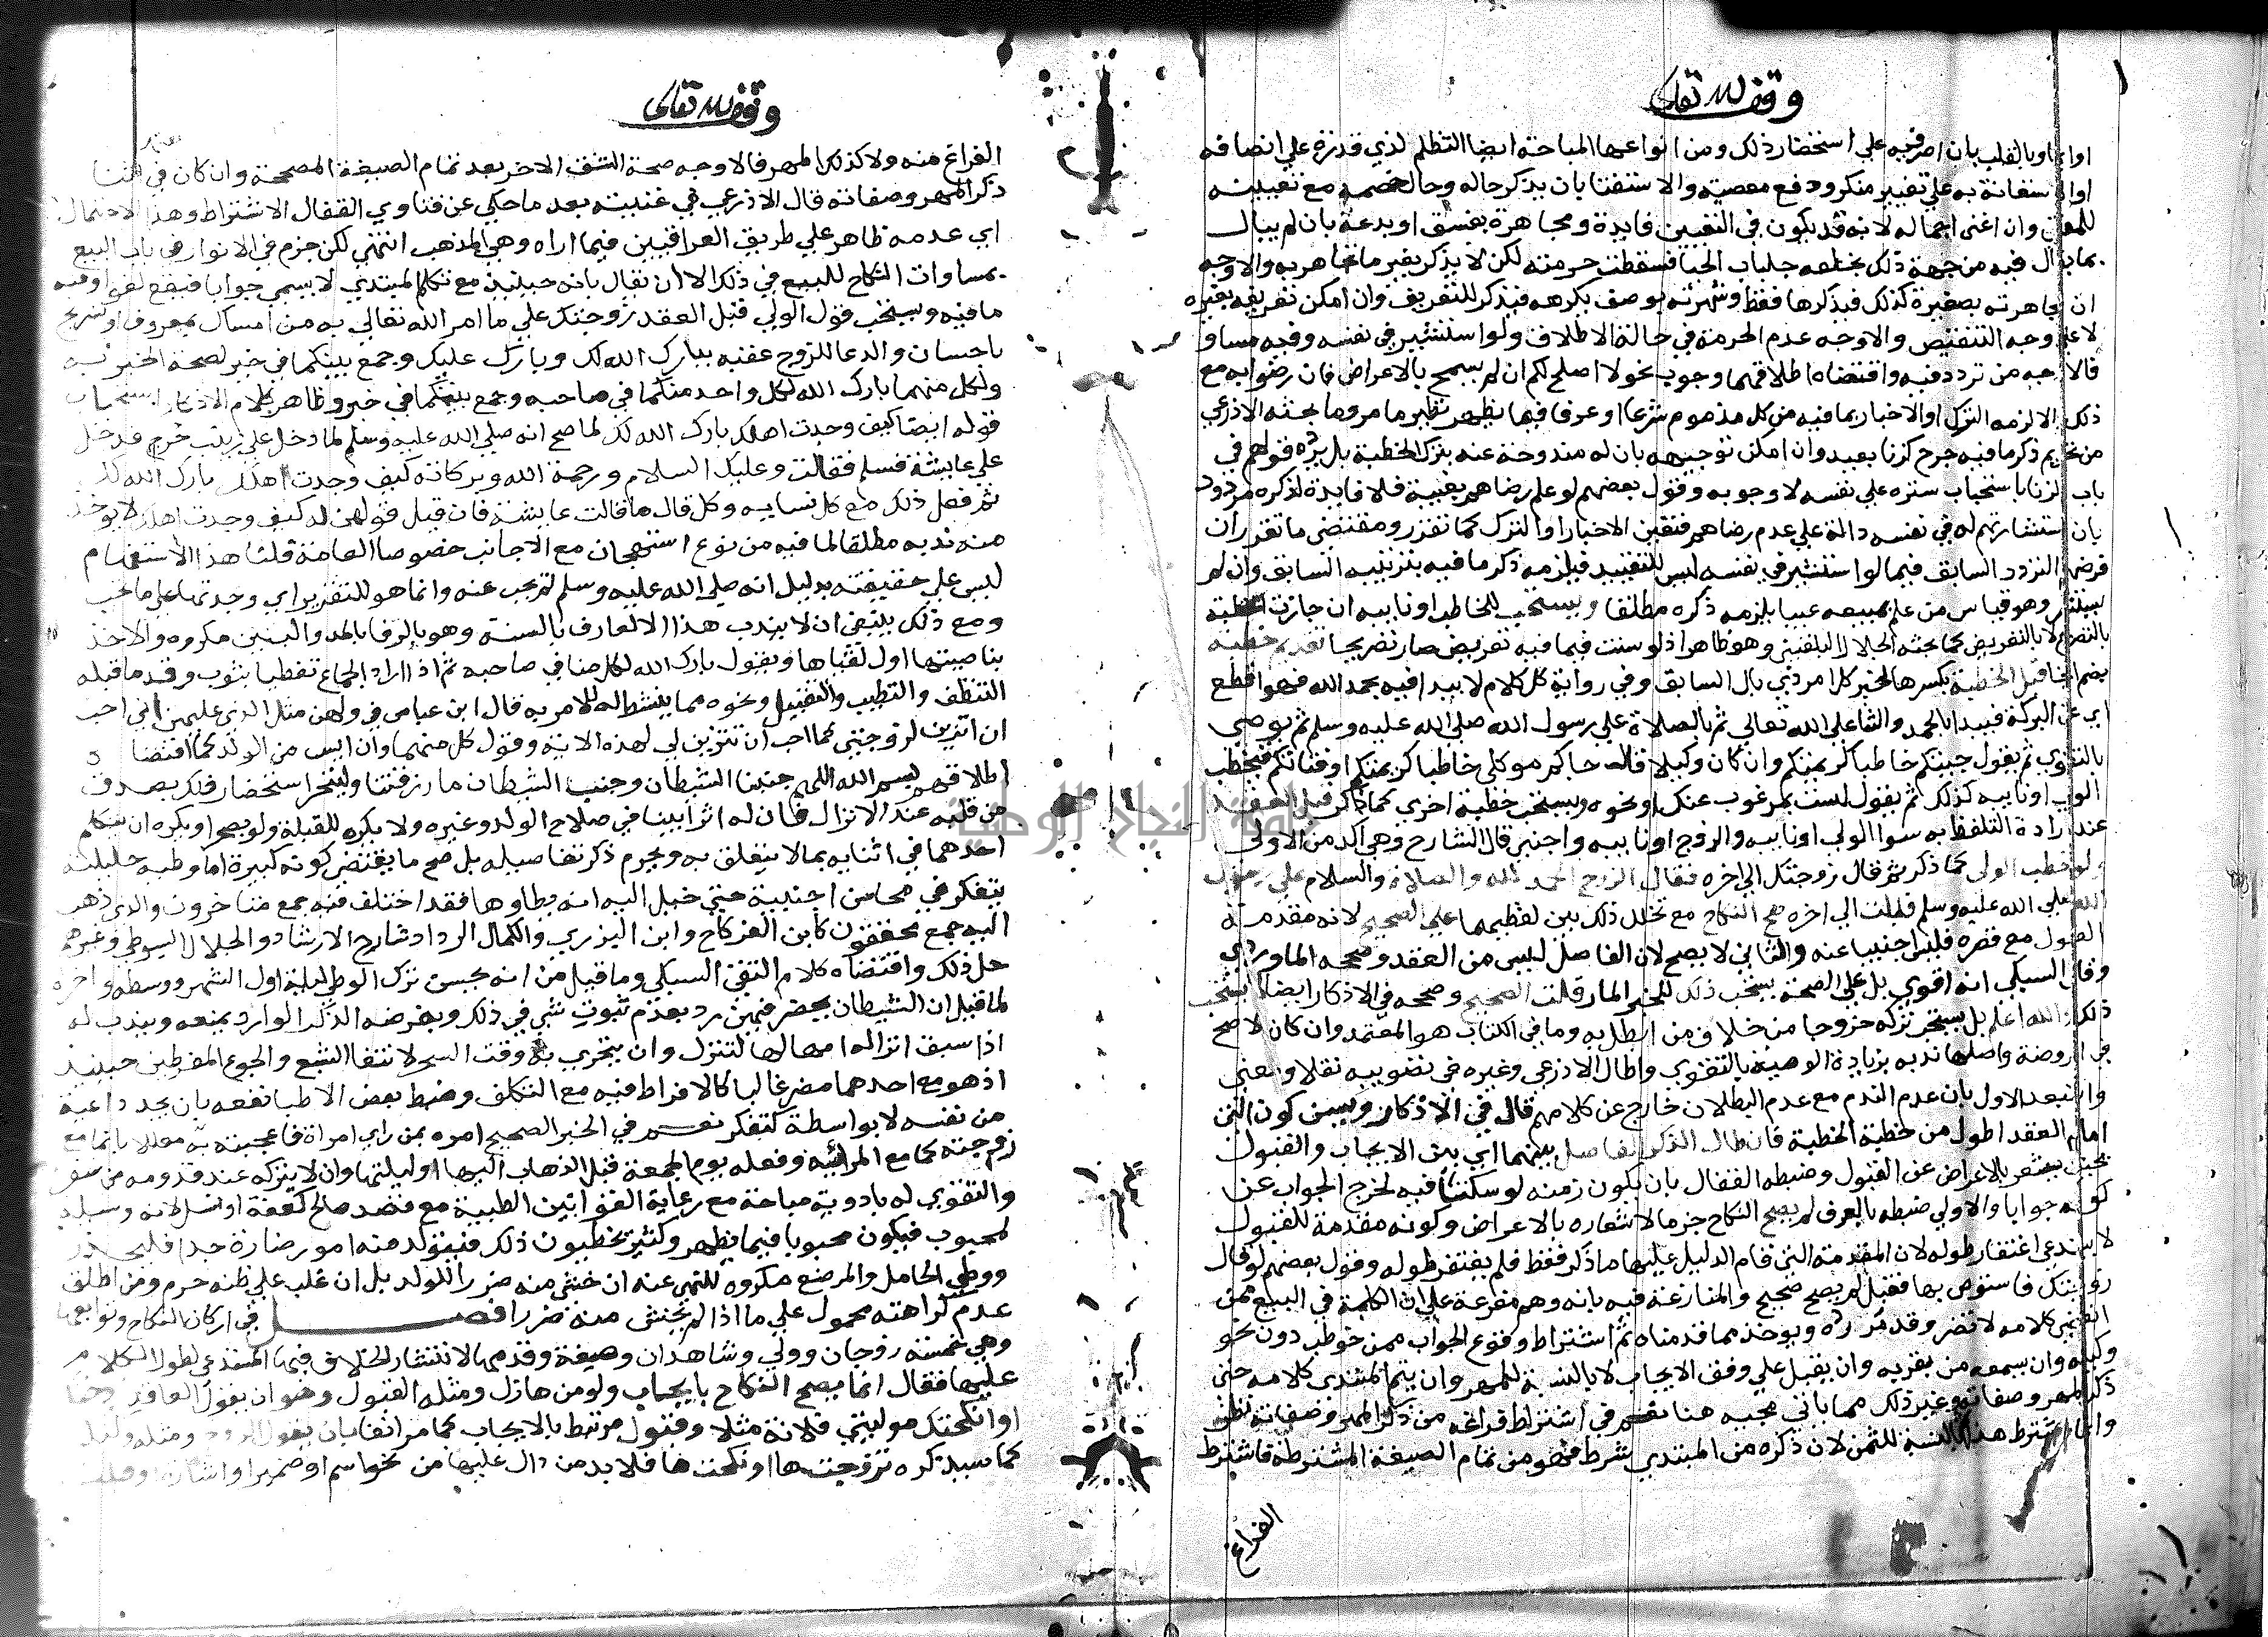 وقف لله تعالى
او اعا وبالقلب بان اصر فيه علي استحضار ذلك ومن انواعها المباحة ايضا التظلم لذي قدرة علي انصافه
او الاستعانة به علي تغيير منكر ودفع معصية والاستفتا بان يذكر حاله وحال خصمه مع تعيينه
للمفتي وان اغنى اجماله لانه قد يكون في التعيين فايدة ومجاهرة بفسق او بدعة بان لم يبال
بما يقال فيه من جهة ذلك بخلعه جلباب الحيا فسقطت حرمته لكن لا يذكر بغير ما تجاهر به والاوجه
ان مجاهرته بصغيرة كذلك فيذكرها فقط وشهرته بوصف يكرهه فيذكر للتعريف وان امكن تعريفه بغيره
لا علي وجه التنقيص والاوجه عدم الحرمة في حالة الاطلاق ولو استشير في نفسه وفيه مساو
فالاوجه من تردد فيه واقتضاه اطلاقهما وجوب نحو لا اصلح لكم ان لم يسمح بالاعراض فان رضوا به مع
ذلك الا لزمه الترك او الاخبار بما فيه من كل مذموم شرعا او عرفا فيما يظهر نظير ما مر وما بحثه الاذرعي
من تحريم ذكر ما فيه جرح كزنا بعيد وان امكن توجيهه بان له مندوحة عنه بترك الخطبة بل يرده قولهم في
باب الزنا باستحباب ستره علي نفسه لا وجوبه وقول بعضهم لو علم رضاهم بعيبه فلا فايدة لذكره مردود
بان استشارتهم له في نفسه دالة علي عدم رضاهم فتعين الاخبار او الترك كما تقرر ومقتضى ما تقرر ان
فرضهم التردد السابق فيما لو استشير في نفسه ليس للتقييد فيلزمه ذكر ما فيه بترتيبه السابق وان لم
يستشر وهو قياس من علم بمبيعه عيبا يلزمه ذكره مطلقا ويستحب للخاطب او نايبه ان جازت الخطبة
بالتصريح لا بالتعريض كما بحثه الجلال البلقيني وهو ظاهر اذ لو سنت فيما فيه تعريض صار تصريحا تقديم خطبة
بضم الخا قبل الخطبة بكسرها لخبر كل امر ذي بال السابق وفي رواية كل كلام لا يبدا فيه بحمد الله فهو اقطع
اي عن البركة فيبدا بالحمد والثنا علي الله تعالى ثم بالصلاة علي رسول الله صلي الله عليه وسلم ثم يوصي
بالتقوي ثم يقول جيتكم خاطبا كريمتكم وان كان وكيلا قال جاكم موكلي خاطبا كريمتكم او فتاتكم فيخطب
الولي او نايبه كذلك ثم يقول لست بمرغوب عنك او نحوه ويستحب خطبة اخري كما ذكر قبل العقد
عند ارادة التلفظ به سوا الولي او نايبه والزوج او نايبه واجنبي قال الشارح وهي اكد من الاولى
ولو خطب الولي كما ذكر ثم قال زوجتك الي اخره فقال الزوج الحمد لله والصلاة والسلام علي رسول
الله صلي الله عليه وسلم قبلت الي اخره صح النكاح مع تخلل ذلك بين لفظيهما علي الصحيح لانه مقدمة
القبول مع قصره فليس اجنبيا عنه والثاني لا يصح لان الفاصل ليس من العقد وصححه الماوردي
وقال السبكي انه اقوي بل علي الصحة يستحب ذلك للخبر المار قلت الصحيح وصححه في الاذكار ايضا لا يستحب
ذلك والله اعلم بل يستحب تركه خروجا من خلاف من ابطل به وما في الكتاب هو المعتمد وان كان الاصح
في الروضة واصلها ندبه بزيادة الوصية بالتقوي واطال الاذرعي وغيره في تصويبه نقلا ومعنى
واستبعد الاول بان عدم الندب مع عدم البطلان خارج عن كلامهم قال في الاذكار ويسن كون التي
امام العقد اطول من خطبة الخطبة فان طال الذكر الفاصل بينهما اي بين الايجاب والقبول
بحيث يشعر بالاعراض عن القبول وضبطه القفال بان يكون زمنه لو سكتا فيه لخرج الجواب عن
كونه جوابا والاولي ضبطه بالعرف لم يصح النكاح جزما لاشعاره بالاعراض وكونه مقدمة للقبول
لا يستدعي اغتفار طوله لان المقدمة التي قام الدليل عليها ما ذكر فقط فلم يغتفر طوله وقول بعضهم لو قال
زوجتك فاستوص بها فقبل لم يصح صحيح والمنازعة فيه بانه وهم مفرعة علي ان الكلمة في البيع ممن
انقضى كلامه لا تضر وقد مر رده ويوخذ مما قدمناه ثم اشتراط وقوع الجواب ممن خوطب دون نحو
وكيله وان يسمعه من بقربه وان يقبل علي وفق الايجاب لا بالنسبة للمهر وان يتم المبتدى كلامه حتى
ذكر المهر وصفاته وغير ذلك مما ياتي مجيه هنا نعم في اشتراط فراغه من ذكر المهر وصفاته نظر
وانما اشترط هذا بالنسبة للثمن لان ذكره من المبتدي شرط فهو من تمام الصيغة المشترطة فاشترط
الفراغ
وقف لله تعالى
الفراغ منه ولا كذلك المهر فالاوجه صحة الشق الاخر بعد تمام الصيغة المصححة وان كان في اثنا
ذكر المهر وصفاته قال الاذرعي في غنيته بعد ما حكي عن فتاوي القفال الاشتراط وهذا الاحتمال
اي عدمه ظاهر علي طريق العراقيين فيما اراه وهي المذهب انتهي لكن جزم في الانوار في باب البيع
بمساوات النكاح للبيع في ذلك الا ان يقال بانه حينيذ مع تكلم المبتدي لا يسمى جوابا فيقع لغوا وفيه
ما فيه ويستحب قول الولي قبل العقد زوجتك علي ما امر الله تعالي به من امساك بمعروف او تسريح
باحسان والدعا للزوج عقبه ببارك الله لك وبارك عليك وجمع بينكما في خير لصحة الخبر به
ولكل منهما بارك الله لكل واحد منكما في صاحبه وجمع بينكما في خير وظاهر كلام الاذكار استحباب
قوله ايضا كيف وجدت اهلك بارك الله لك لما صح انه صلي الله عليه وسلم لما دخل علي زينب خرج فدخل
علي عايشة فسلم فقالت وعليك السلام ورحمة الله وبركاته كيف وجدت اهلك بارك الله لك
ثم فعل ذلك مع كل نسايه وكل قال ما قالت عايشة فان قيل قولهن له كيف وجدت اهلك لا يوخذ
منه ندبه مطلقا لما فيه من نوع استهجان مع الاجانب خصوصا العامة قلنا هذا الاستفهام
ليس علي حقيقته بدليل انه صلي الله عليه وسلم لم يجب عنه وانما هو للتقرير اي وجدتها علي ما تحب
ومع ذلك ينبغي ان لا يندب هذا الا لعارف بالسنة وهو بالرفا بالمد والبنين مكروه والاخذ
بناصيتها اول لقياها ويقول بارك الله لكل منا في صاحبه ثم اذا اراد الجماع تغطيا بثوب وقدما قبله
التنظف والتطيب والتقبيل ونحوه مما ينشط له للامر به قال ابن عباس في ولهن مثل الذي عليهن اني احب
ان اتزين لزوجتي كما احب ان تتزين لي لهذه الاية وقول كل منهما وان ايس من الولد كما اقتضاه
اطلاقهم بسم الله اللهم جنبنا الشيطان وجنب الشيطان ما رزقتنا وليتحر استحضار ذلك بصدق
من قلبه عند الانزال فان له اثرا بينا في صلاح الولد وغيره ولا يكره للقبلة ولو بصحرا ويكره ان يتكلم
احدهما في اثنايه بما لا يتعلق به ويحرم ذكر تفاصيله بل صح ما يقتضي كونه كبيرة اما وطيه حليلته
يتفكر في محاسن اجنبية حتى خيل اليه انه يطاوها فقد اختلف فيه جمع متاخرون والذي ذهب
اليه جمع محققون كابن الفركاح وابن البزري والكمال الرداد شارح الارشاد والجلال السيوطي وغيرهم
حل ذلك واقتضاه كلام التقي السبكي وما قيل من انه يحسن ترك الوطي ليلة اول الشهر ووسطه واخره
لما قيل ان الشيطان يحضر فيهن رد بعدم ثبوت شي في ذلك وبفرضه الذكر الوارد يمنعه ويندب له
اذا سبق انزاله امهالها لتنزل وان يتحري به وقت السحر لانتفا الشبع والجوع المفرطين حينيذ
اذ هو مع احدهما مضر غالبا كالافراط فيه مع التكلف وضبط بعض الاطبا نفعه بان يجد داعية
من نفسه لا بواسطة كتفكر نعم في الخبر الصحيح امره بمن راي امراة فاعجبته به معللا بانما مع
زوجته كما مع المرئية وفعله يوم الجمعة قبل الذهاب اليها او ليلتها وان لا يتركه عند قدومه من سفر
والتقوي له بادوية مباحة مع رعاية القوانين الطبية مع قصد صالح كعفة او نسل لانه وسيلة
لمحبوب فيكون محبوبا فيما يظهر وكثير يخطيون ذلك فيتولد منه امور ضارة جدا فليحذر
ووطي الحامل والمرضع مكروه للنهي عنه ان خشي منه ضررا للولد بل ان غلب علي ظنه حرم ومن اطلق
عدم كراهته محمول علي ما اذا لم يخش منه ضررا فصل في اركان النكاح وتوابعها
وهي خمسة زوجان وولي وشاهدان وصيغة وقدمها لانتشار الخلاف فيها المستدعي لطول الكلام
عليها فقال انما يصح النكاح بايجاب ولو من هازل ومثله القبول وهو ان يقول العاقد
او انكحتك موليتي فلانة مثلا وقبول مرتبط بالايجاب كما مر انفا بان يقول الزوج ومثله وليه
كما سيذكره تزوجتها او نكحتها فلا بد من دال عليها من نحو اسم او ضمير او اشارة